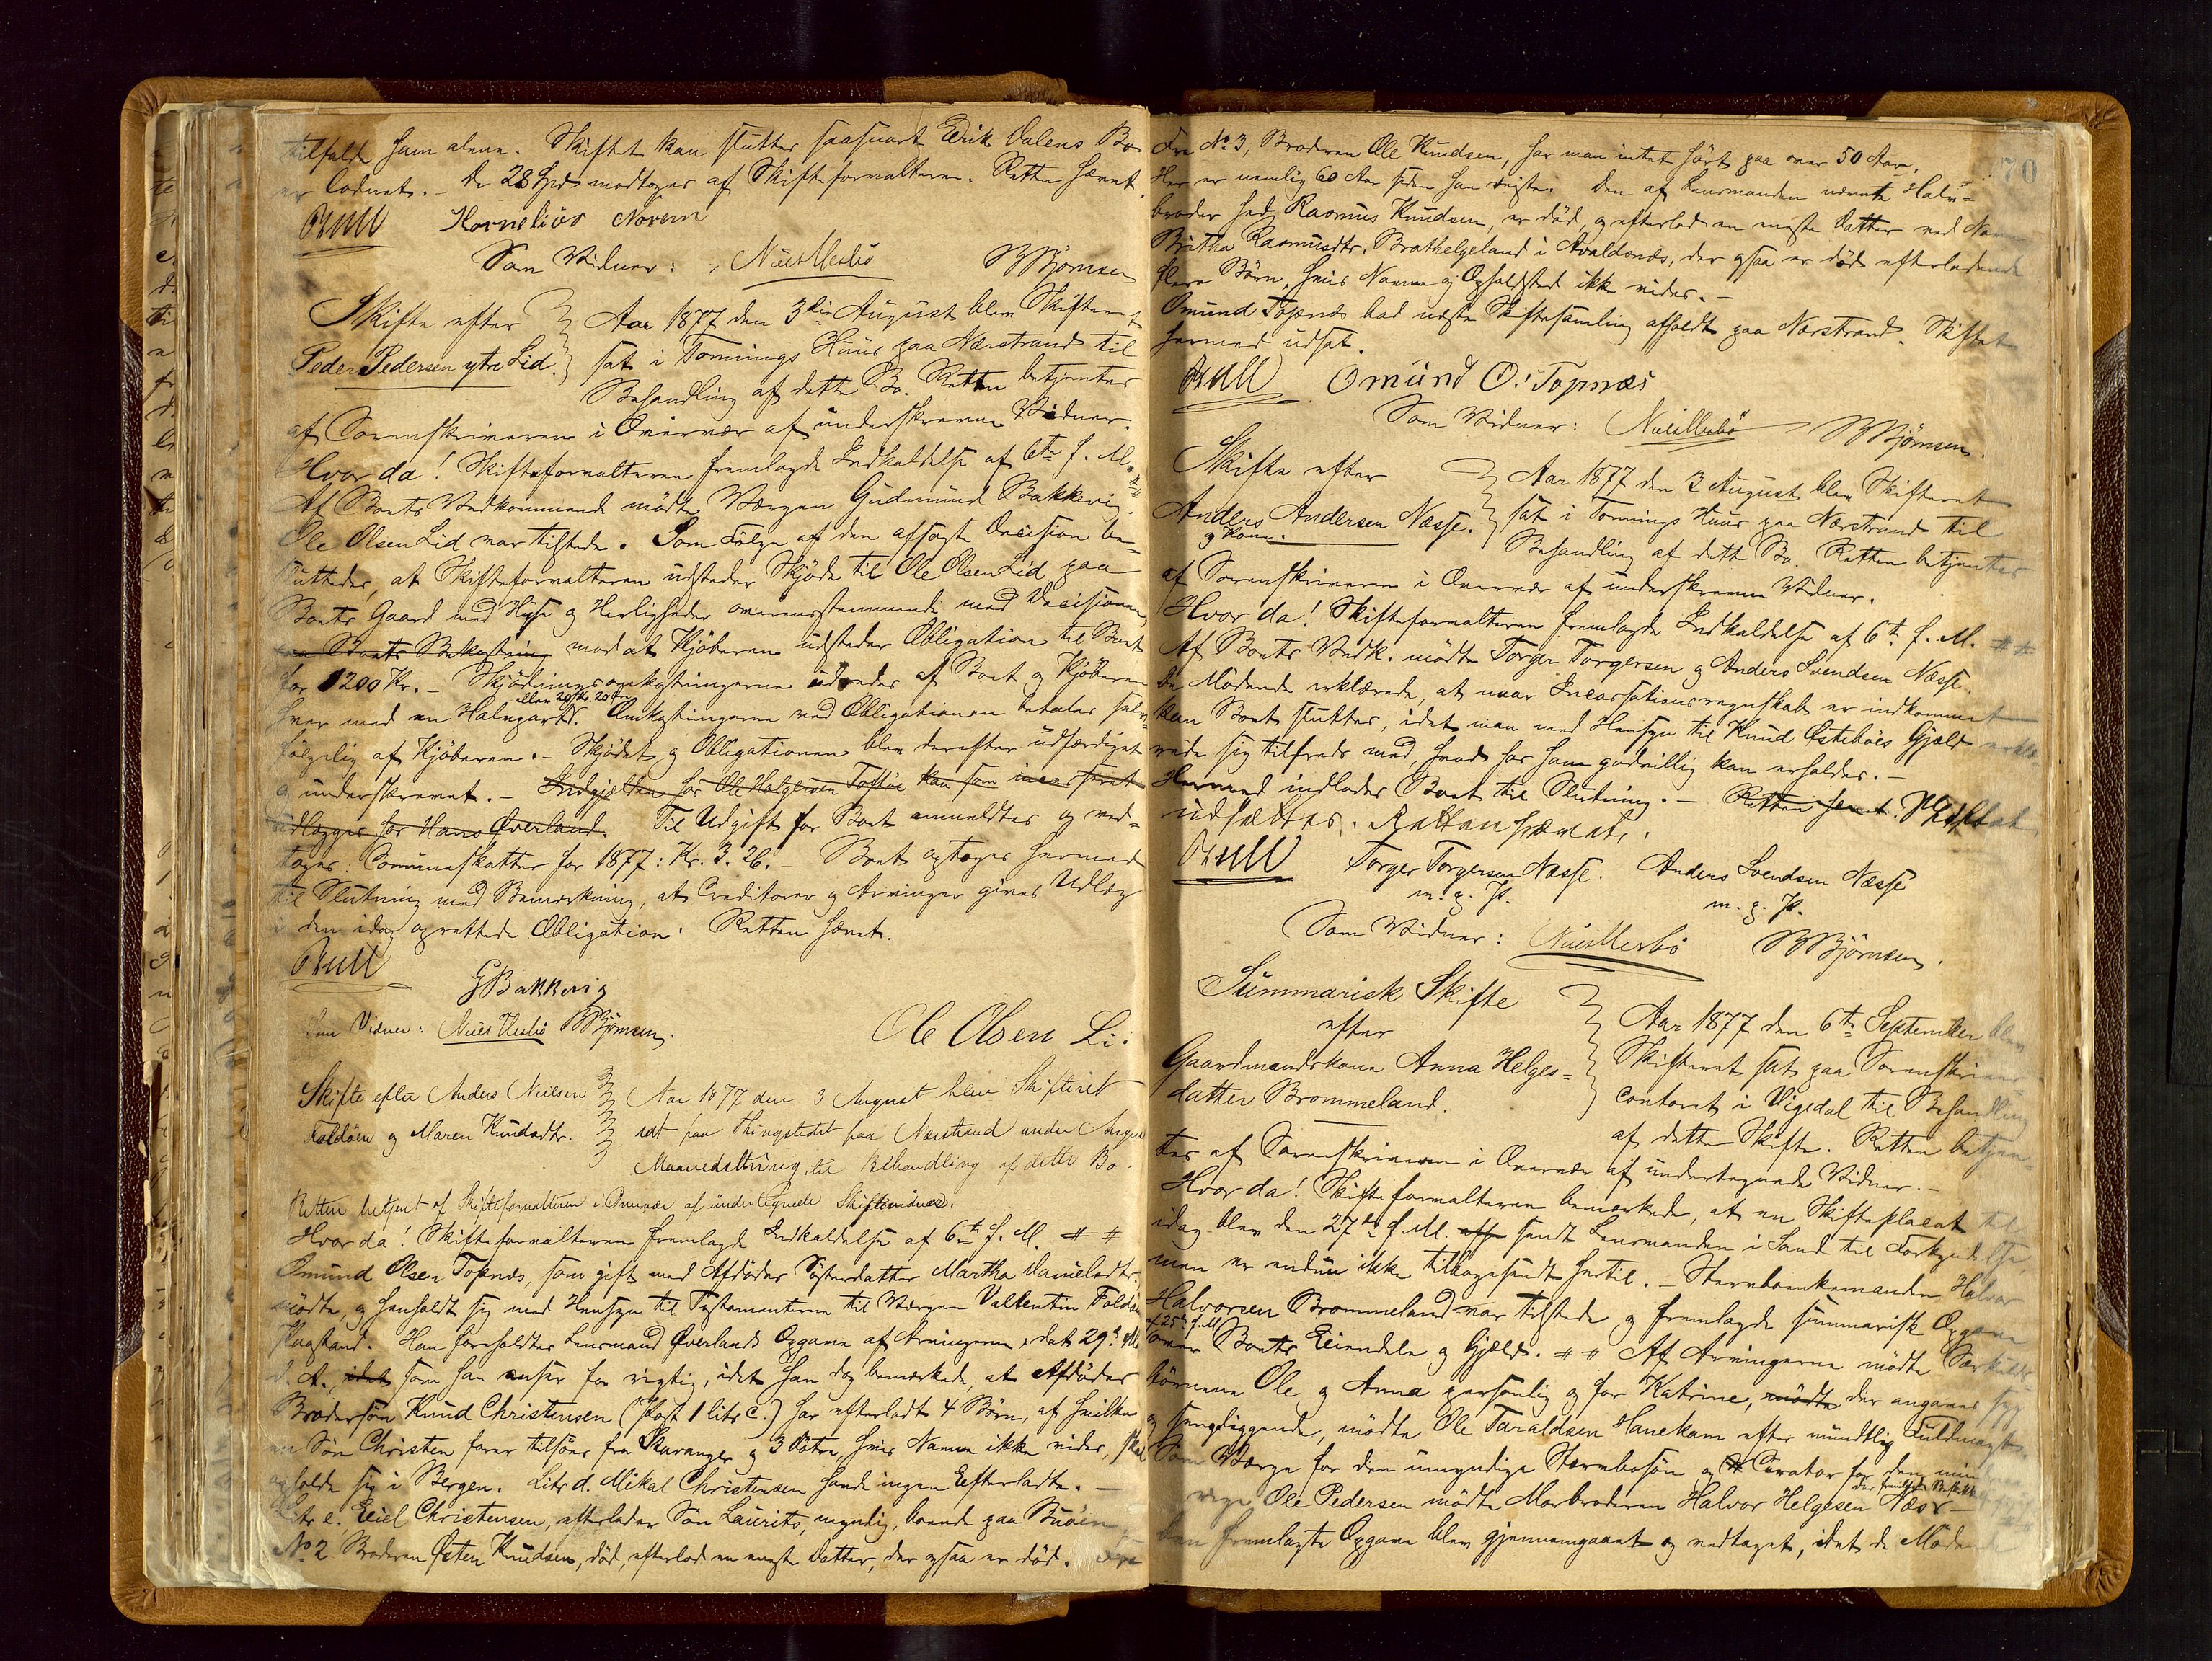 tilfalde ham alene. Skiftet kan sluttes saasnart Eerik Dalens Bo
er lodnet. De 28 Spd modtoges af Skifteforvalteren. Retten hævet.
Kornelius Novem
Som Vidner: BBjörnsen
Skifte efter
Peder Pedersen ytre Lid.
Aar 1877 den 3die August blev Skifteret
sat i Tonnings Huus paa Nerstrand til
Behandling af dette Bo. Retten betjentes
af Sorenskriveren i Overvær af underskrevne Vidner.
Hvorda! Skifteforvalteren fremlagde Indkaldelse af 6te f. M.
Af Boets Vedkommende mødte Værgen Gudmund Bakkevig.
Ole Olsen Lid var tilstede. Som Følge af den afsagte Decision be-
sluttedes, at Skifteforvalteren udsteder Skjøde til Ole Olsen Lid paa
Boets Gaard med Huse og Herligheder overensstemmende med Decisionen
paa Boets Bekostning mod at Kjøberen udsteder Obligation til Boet
for 1200 Kr. – Skjødningsomkostningerne udredes af Boet og Kjøberen
hver med en Halvpart. Omkostningerne ved Obligationen betales selv-
følgelig af Kjøberen. – Skjødet og Obligationen blev derefter udfærdiget
og underskrevet. – Indgjælden hos Ole Halgersen Tostøe kan som incasseret
udlægges for Hans Qverland. Til Udgift for Boet anmeldtes og ved-
toges: Communeskatter for 1877: Kr. 3. 26. – Boet optoges hermed
til Slutning med Bemærkning, at Creditorer og Arvinger gives Udlæg
i den idag oprettede Obligation. Retten hævet.
GBakkevig
Som Vidner: BBjörnsen.
Ole Olsen Li:
Skifte efter Anders Nielsen
Foldöen og Maren Knudsdtr.
Aar 1877 den 3 August blev Skifteret
sat paa Thingstedet paa Nerstrand under August
Maanedsthing til Behandling af dette Bo.
Retten betjent af Skifteforvalteren i Overvær af undertegnede Skiftevidner.
Hvor da! Skifteforvalteren fremlagde Indkaldelse af 6te f. M. # #
Omund Olsen Topnæs, som gift med Afdødes Søsterdatter Martha Danielsdtr.
mødte, og henholdt sig med Hensyn til Testamenterne til Værgen Valentin Foldöe
Paastand. Han foreholdtes Lensmand Qverlands Opgave af Arvingerne, dat. 29de
d. A., idet som han anser for rigtig, idet han dog bemærkede, at Afdødes
Brodersøn Knud Christensen (Post 1 litr c.) har efterladt 4 Børn, af hvilke
en Søn Christen farer tilsøes fra Stavanger og 3 Døtre, hvis Navne ikke vides, skal
opholde sig i Bergen. Litr d. Mikal Christensen havde ingen Efterladte. –
Litr e. Eiel Christensen, efterlader Søn Laurits, myndig, boende paa Buöen
No 2 Broderen Östen Knudsen, død, efterlod en eneste Datter, der ogsaa er død.
70
dre No 3, Broderen Ole Knudsen, har man intet hørt paa over 50 Aar.
Her er nemlig 60 Aar siden han reiste. Den af Lensmanden nævnte Halv-
broder hed Rasmus Knudsen, er død, og efterlod en eneste Datter ved Navn
Birtha Rasmusdtr. Brathelgeland i Avaldsnæs, der ogsaa er død efterladende
flere Børn, hvis Navne og Opholdssted ikke vides. –
Omund Topnæs bad næste Skiftesamling afholdt paa Nerstrand. Skiftet
hermed udsat.
Omund O: Topnæs
Som Vidner: BBjörnsen.
Skifte efter
Anders Andersen Næsse.
og Kone.
Aar 1877 den 3 August blev Skifteret
sat i Tonnings Huus paa Nerstrand til
Behandling af dette Bo. Retten betjentes
af Sorenskriveren i Overvær af underskrevne Vidner.
Hvor da! Skifteforvalteren fremlagde Indkaldelse af 6te f. M. # #
Af Boets Vedk. mødte Torger Torgersen og Anders Svendsen Næsse.
De Mødende erklærede, at naar Incassationsregnskab er indkommet
kan Boet sluttes, idet man med Hensyn til Knud Østebøes Gjæld erklæ-
rede sig tilfreds med, hvad hos ham godvillig kan erholdes. –
Hermed indlodes Boet til Slutning. – Retten hævet. Skiftet
udsættes. Retten hævet.
Torger Torgersen Næsse. Anders Svendsen Næsse
m. p. P. m. p. P.
Som Vidner: BBjörnsen.
Summarisk Skifte
efter
Gaardmandskone Anna Helges-
datter Brommeland.
Aar 1877 den 6te September blev
Skifteret sat paa Sorenskriver
contoret i Vigedal til Behandling
af dette Skifte. Retten betjen-
tes af Sorenskriveren i Overvær af undertegnede Vidner. –
Hvor da! Skifteforvalteren bemærkede, at en Skifteplacat til
idag blev den 27de f. M. sendt Lensmanden i Sand til Forkyndelse,
men er endnu ikke tilbagesendt hertil. – Stervboenkemanden Halvor
Halvorsen Brommeland var tilstede og fremlagde summarisk Opgave
af 25de f. M.
over Boets Eiendele og Gjæld. # # Af Arvingerne mødte Særkulds-
børnene Ole og Anna personlig og for Katrine, mødte der angaves syg
og sengeliggende, mødte Ole Taraldsen Hanekam efter mundtlig Fuldmagt.
Som Værge for den umyndige Stervbosøn og Curator for den
Ole Pedersen mødte Morbroderen Halvor Helgesen Næss
den fremlagte Opgave blev gjennemgaaet og vedtaget, idet de Møden